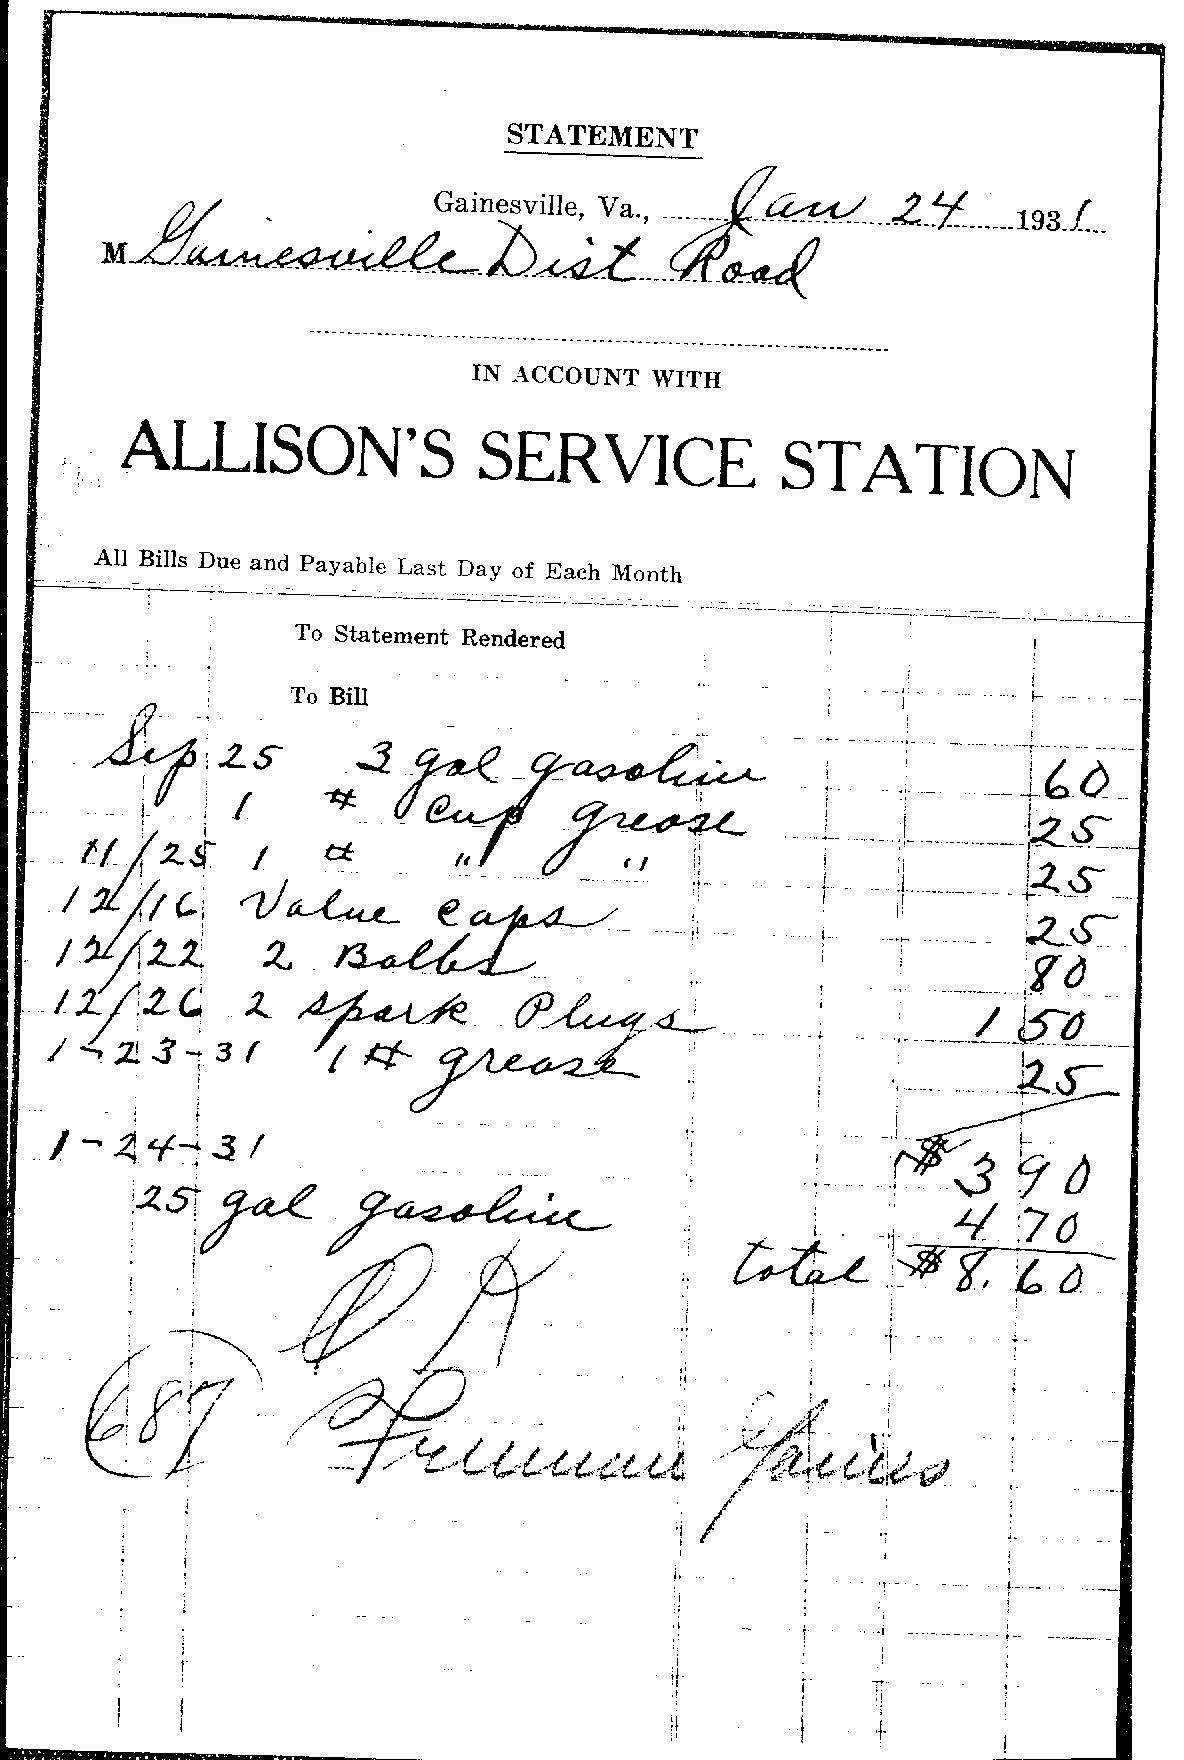 STATEMENT
Gainesville, Va., Jan 24 1931
M Gainesville Dist Road
IN ACCOUNT WITH
ALLISON'S SERVICE STATION
All Bills Due and Payable Last Day of Each Month
To Statement Rendered
To Bill
Sep 25 3 gal gasoline 60
1 # Cup grease 25
11/25 1 # " " 25
12/16 Valve caps 25
12/22 2 Bolbs 80
12/26 2 Spark Plugs 1 50
1-23-31 1 # grease 25
1-24-31 $ 3 90
25 gal gasoline 4 70
total $ 8.60
O K
687 Freeman Gaines